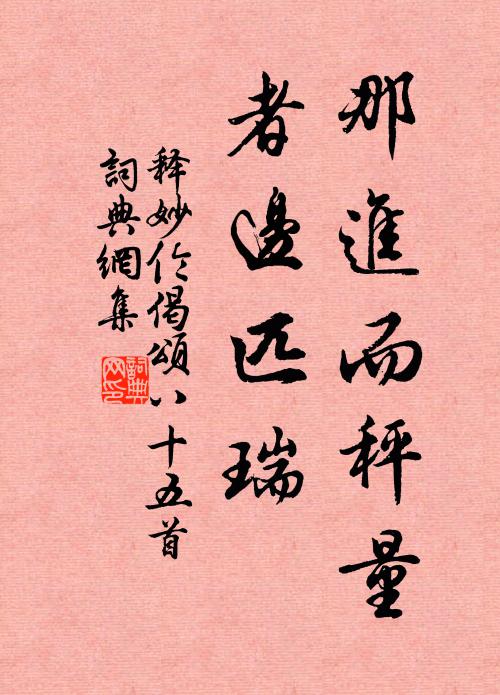 那進而秤量
者邊匹瑞
释妙伦偈頌八十五首
詞典網集
詞典网印